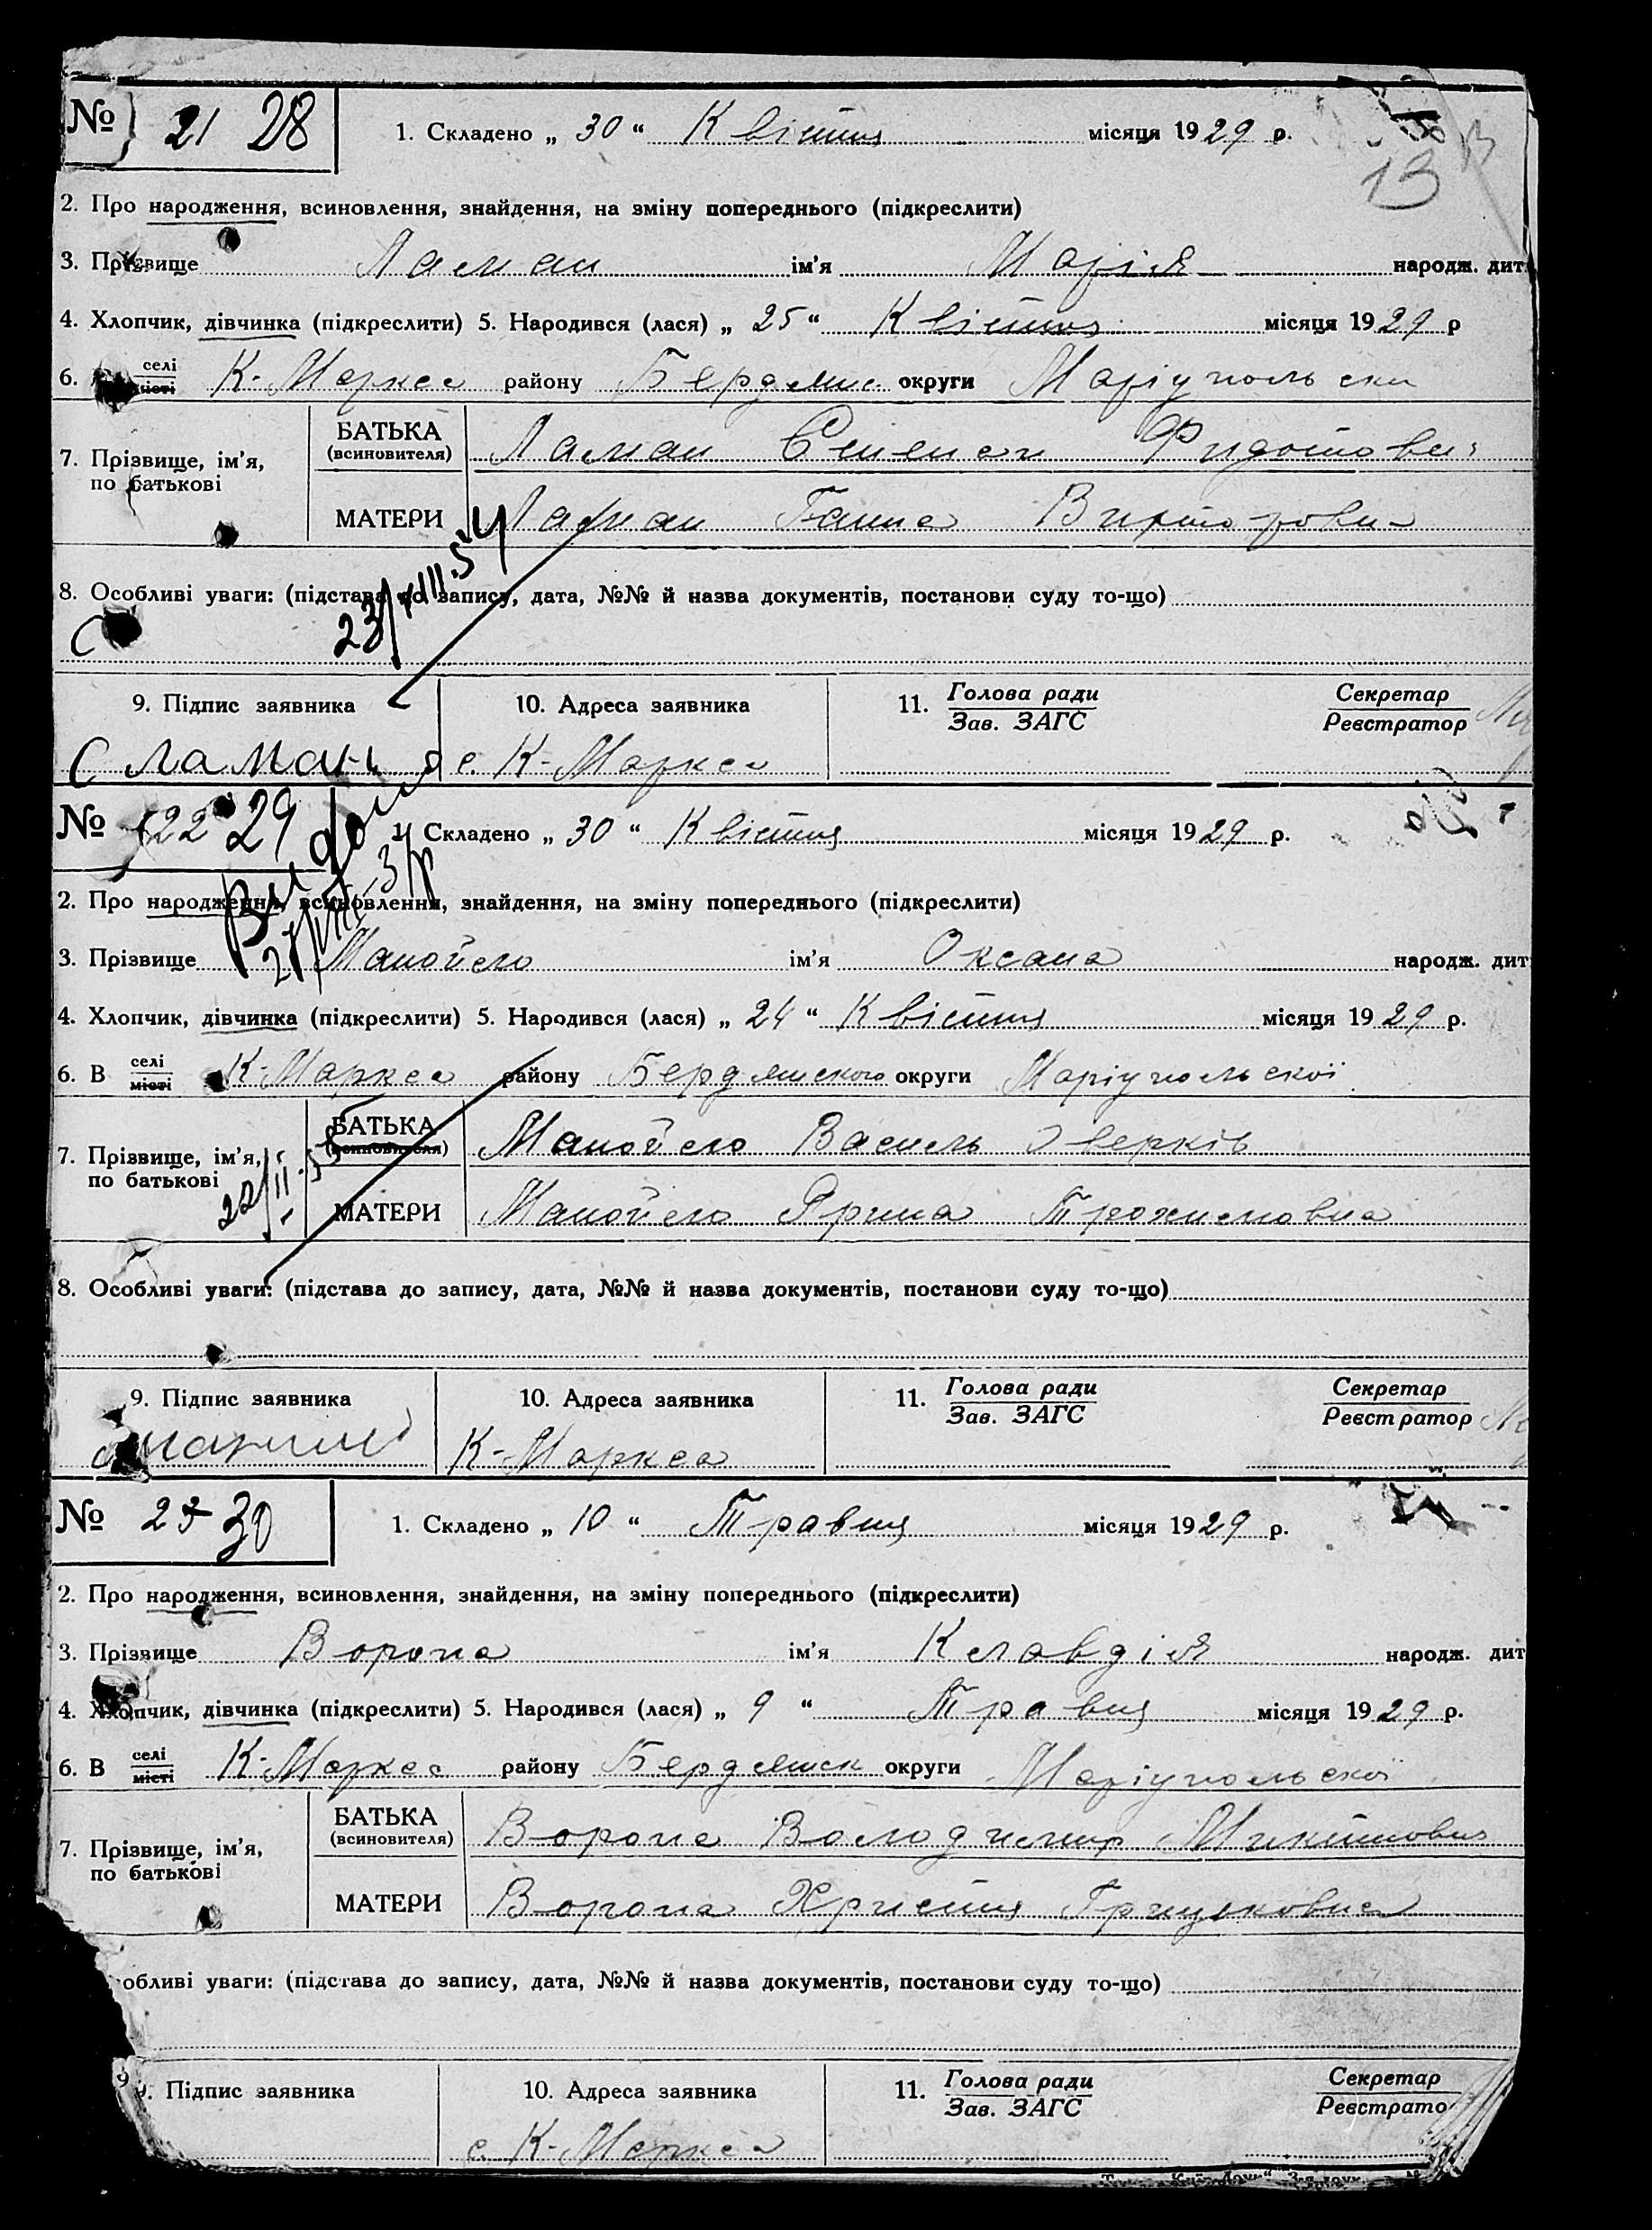 № 21 28 1. Складено „ 30 “ Квітня місяця 1929 р.
13
2. Про народження, всиновлення, знайдення, на зміну попереднього (підкреслити)
3. Прізвище Ламан ім’я Марія народж. дит
4. Хлопчик, дівчинка (підкреслити) 5. Народився (лася) „ 25 “ Квітня місяця 1929 р
6. селі місті К-Маркса району Бердянс округи Маріупольськ
7. Прізвище, ім’я, по батькові
БАТЬКА (всиновителя) Ламан Степан Федотови
МАТЕРИ Ламан Ганна
8. Особливі уваги: (підстава до запису, дата, №№ й назва документів, постанови суду то-що)
23/VIII.54
9. Підпис заявника 10. Адреса заявника 11. Голова ради Зав. ЗАГС Секретар Реєстратор
С Ламан с. К-Маркса
№ 22 29 1. Складено „ 30 “ Квітня місяця 1929 р.
2. Про народження, всиновлення, знайдення, на зміну попереднього (підкреслити)
3. Прізвище Манойло ім’я Оксана народж. дит
4. Хлопчик, дівчинка (підкреслити) 5. Народився (лася) „ 24 “ Квітня місяця 1929 р.
6. В селі місті К-Маркса району Бердянського округи Маріупольскої
7. Прізвище, ім’я, по батькові
БАТЬКА (всиновителя) Манойло Василь
22/II-55
МАТЕРИ Манойло Ярина Трохимовна
8. Особливі уваги: (підстава до запису, дата, №№ й назва документів, постанови суду то-що)
9. Підпис заявника 10. Адреса заявника 11. Голова ради Зав. ЗАГС Секретар Реєстратор
К-Маркса
№ 23 30 1. Складено „ 10 “ Травня місяця 1929 р.
2. Про народження, всиновлення, знайдення, на зміну попереднього (підкреслити)
3. Прізвище Ворона ім’я Клавдія народж. дит
4. Хлопчик, дівчинка (підкреслити) 5. Народився (лася) „ 9 “ Травня місяця 1929 р.
6. В селі місті К-Маркса району Бердянськ округи Маріупольскої
7. Прізвище, ім’я, по батькові
БАТЬКА (всиновителя) Ворона Володимир Микитович
МАТЕРИ Ворона Христя Грицьковна
обливі уваги: (підстава до запису, дата, №№ й назва документів, постанови суду то-що)
9. Підпис заявника 10. Адреса заявника 11. Голова ради Зав. ЗАГС Секретар Реєстрато
с. К-Маркса